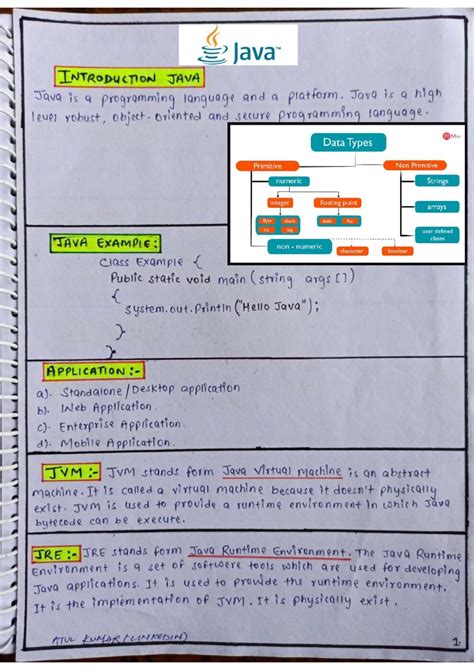 Java™
INTRODUCTION JAVA
Java is a programming language and a platform. Java is a high
level robust, object-oriented and secure programming language.
Data Types
Primitive
Non Primitive
numeric
Strings
integer
floating point
arrays
Byte
short
int
user defined
classes
non - numeric
character
boolean
JAVA EXAMPLE:
Class Example {
Public static void main (string args [])
{
system.out.Println ("Hello Java");
}
}
APPLICATION :-
a). Standalone/Desktop application
b). Web Application.
c). Enterprise Application.
d). Mobile Application.
JVM :- JVM stands form Java Virtual Machine is an abstract
machine. It is called a virtual machine because it doesn't physically
exist. JVM is used to provide a runtime environment in which Java
bytecode can be execute.
JRE :- JRE stands form Java Runtime Environment. The Java Runtime
Environment is a set of software tools which are used for developing
Java applications. It is used to provide the runtime environment.
It is the implementation of JVM. It is physically exist.
ATUL KUMAR (LINKEDIN)
1.